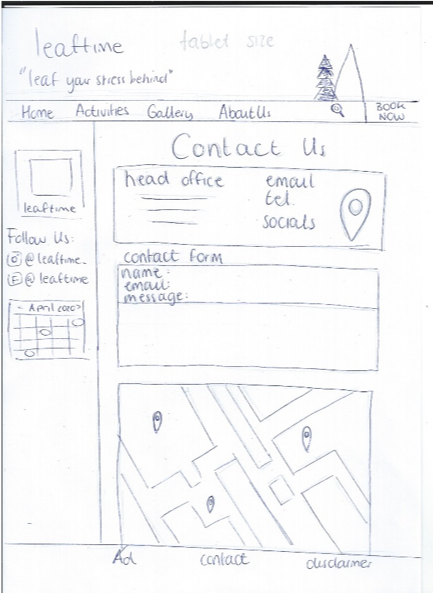 leaftime tablet size
"leaf your stress behind"
Home Activities Gallery About Us BOOK NOW
Contact Us
leaftime
Follow Us:
@leaftime_
@leaftime
< April 2020>
head office
email
tel.
socials
contact form
name:
email:
message:
Ad contact disclaimer